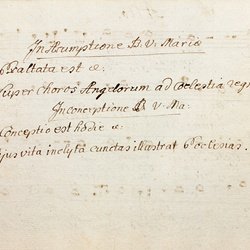 In Assumptione B. V. Mariæ
Exaltata est &.
super Choros Angelorum ad Coelestia regn
In Conceptione B V. Ma:
Conceptio est hodie &.
jus vita inclyta cunctas illustrat Ecclesias.